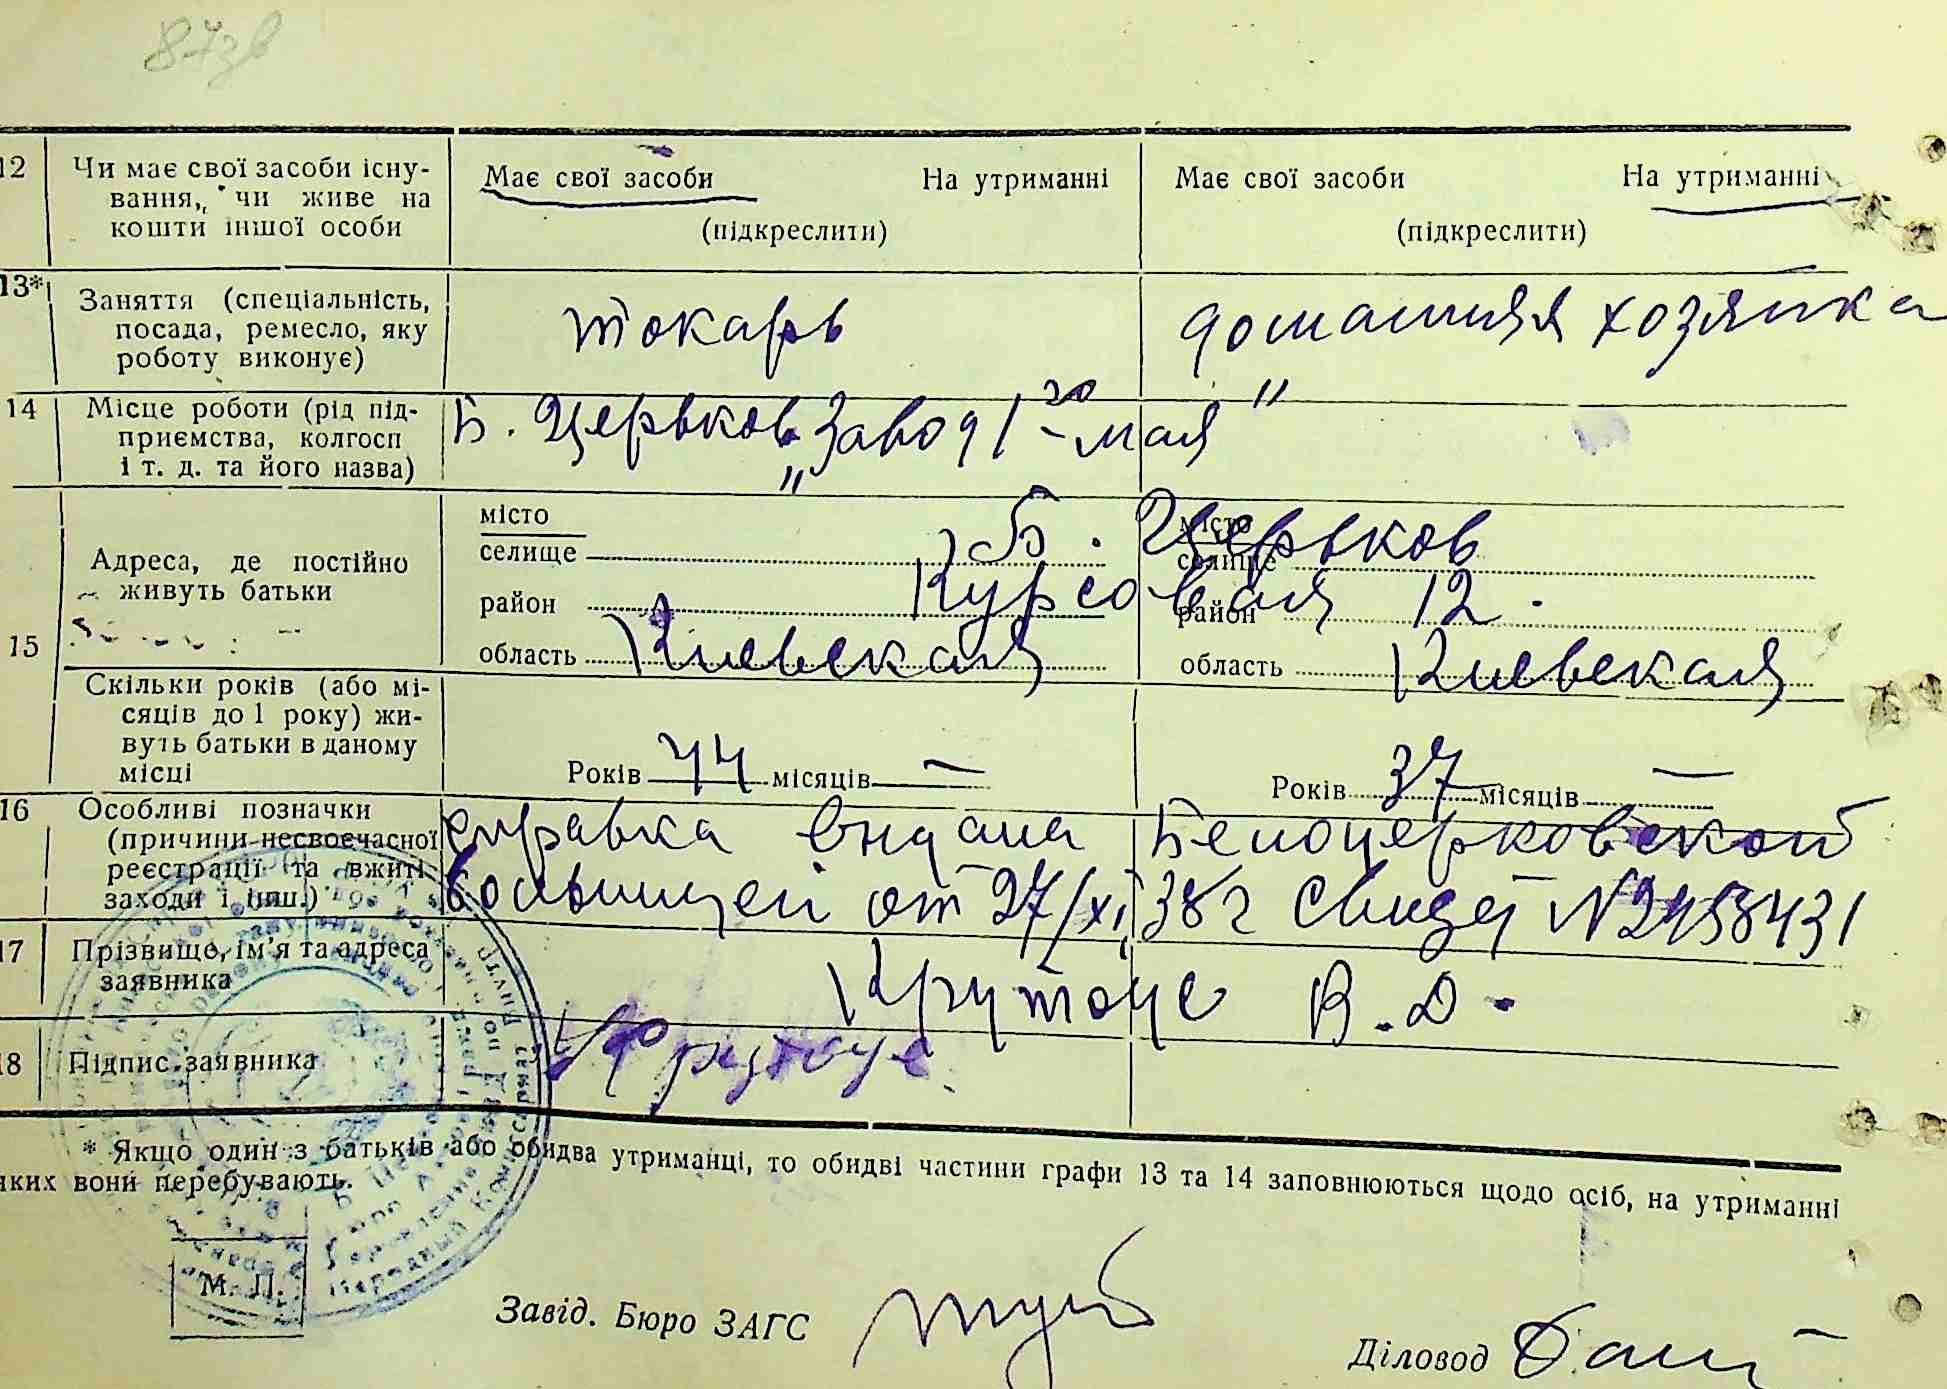 87зв
12 Чи має свої засоби існу-
вання, чи живе на
кошти іншої особи
Має свої засоби На утриманні
(підкреслити)
Має свої засоби На утриманні
(підкреслити)
13* Заняття (спеціальність,
посада, ремесло, яку
роботу виконує)
токарь
домашняя хозяйка
14 Місце роботи (рід під-
приємства, колгосп
і т. д. та його назва)
Б. Церьков „Завод 1го мая"
15 Адреса, де постійно
живуть батьки
місто
селище
район
область Киевская
місто
селище
район
область Киевская
Б. Церьков
Курсовая 12.
Скільки років (або мі-
сяців до 1 року) жи-
вуть батьки в даному
місці
Років 44 місяців —
Років 37 місяців —
16 Особливі позначки
(причини несвоєчасної
реєстрації та вжиті
заходи і інш.)
справка выдана Белоцерковской
больницей от 27/XI 38 г Свидет N2458431
17 Прізвище, ім'я та адреса
заявника
Крутоус В. Д.
18 Підпис заявника
Крутоус
* Якщо один з батьків або обидва утриманці, то обидві частини графи 13 та 14 заповнюються щодо осіб, на утриманні
яких вони перебувають.
М. П.
Завід. Бюро ЗАГС
Діловод